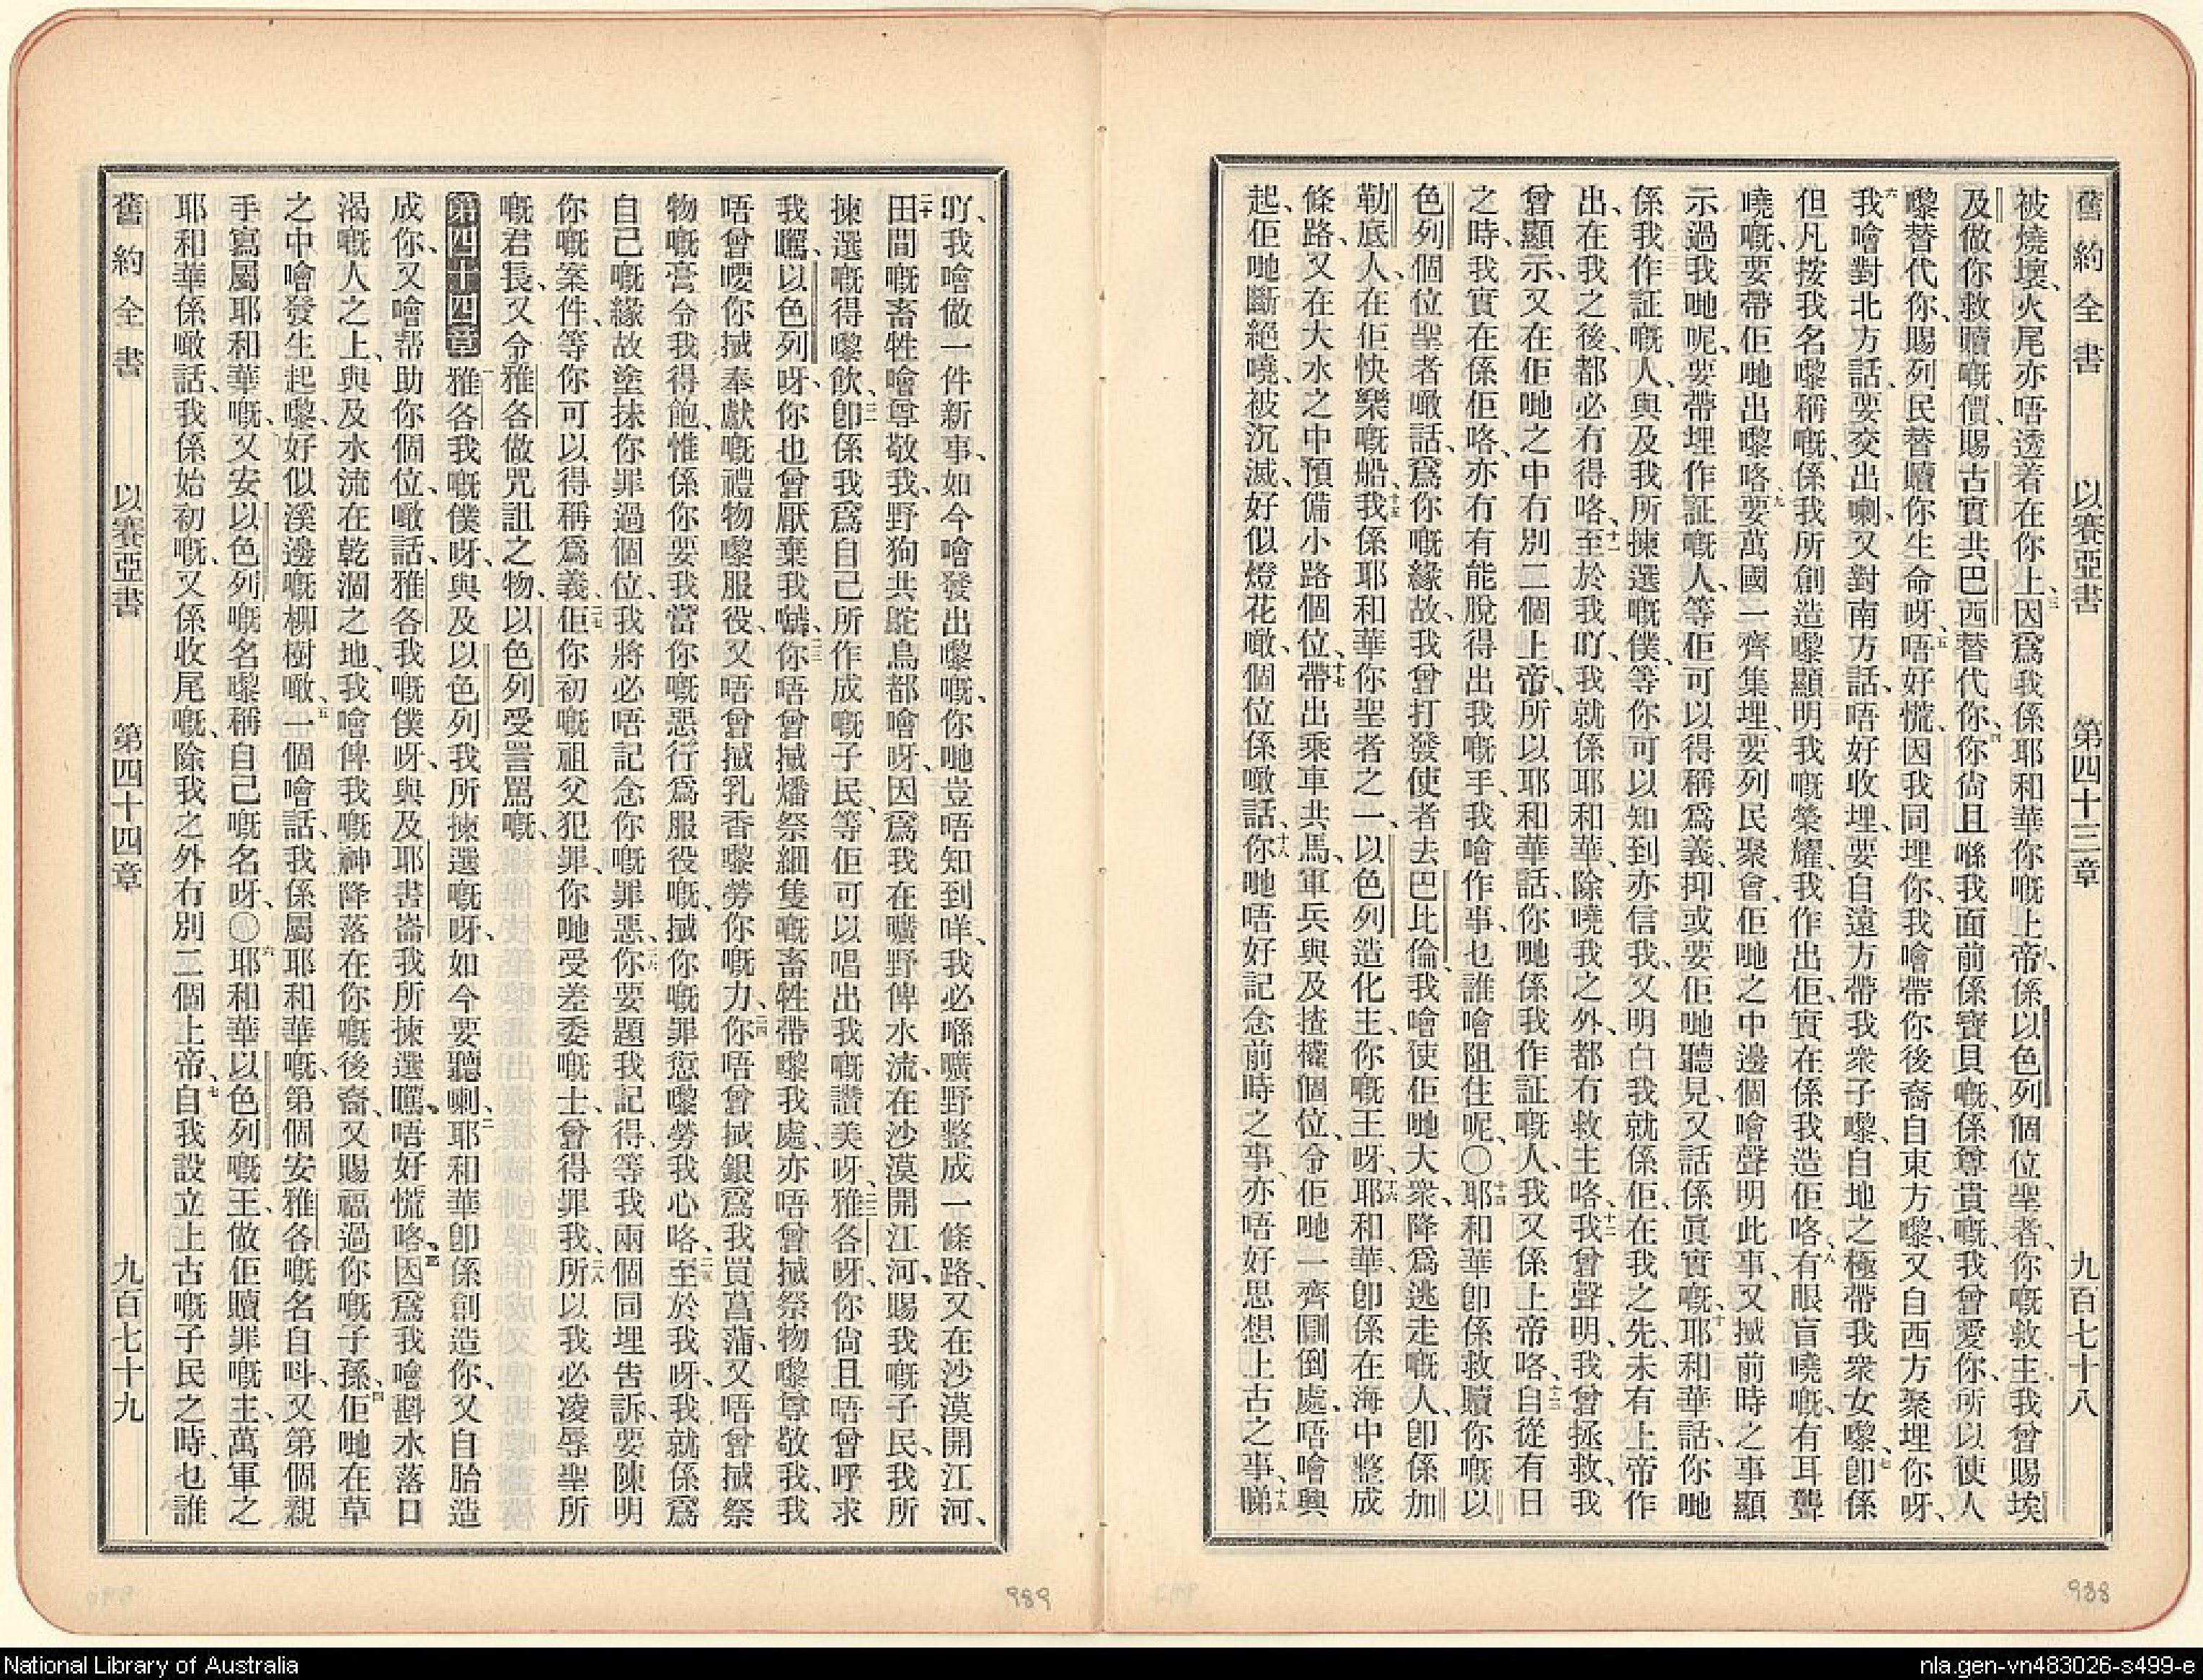 舊約全書　以賽亞書　第四十三章　九百七十八
被燒壞、火尾亦唔透着在你上、三因爲我係耶和華你嘅上帝、係以色列個位聖者、你嘅救主、我曾賜埃
及做你救贖嘅價、賜古實共巴西替代你、四你尙且喺我面前係寶貝嘅、係尊貴嘅、我曾愛你、所以使人
嚟替代你、賜列民替贖你生命呀、五唔好慌、因我同埋你、我噲帶你後裔自東方嚟、又自西方聚埋你呀、
六我噲對北方話、要交出喇、又對南方話、唔好收埋、要自遠方帶我衆子嚟、自地之極帶我衆女嚟、七卽係
但凡按我名嚟稱嘅、係我所創造嚟顯明我嘅榮耀、我作出佢、實在係我造佢咯、八有眼盲嘵嘅、有耳聾
嘵嘅、要帶佢哋出嚟咯、九要萬國一齊集埋、要列民聚會、佢哋之中邊個噲聲明此事、又搣前時之事顯
示過我哋呢、要帶埋作証嘅人、等佢可以得稱爲義、抑或要佢哋聽見、又話係眞實嘅、十耶和華話、你哋
係我作証嘅人、與及我所揀選嘅僕、等你可以知到亦信我、又明白我就係佢、在我之先、未有上帝作
出、在我之後、都必冇得咯、十一至於我吖、我就係耶和華、除嘵我之外、都冇救主咯、十二我曾聲明、我曾拯救、我
曾顯示、又在佢哋之中冇別二個上帝、所以耶和華話、你哋係我作証嘅人、我又係上帝咯、十三自從有日
之時、我實在係佢咯、亦冇有能脫得出我嘅手、我噲作事、乜誰噲阻住呢、〇十四耶和華卽係救贖你嘅以
色列個位聖者噉話、爲你嘅緣故、我曾打發使者去巴比倫、我噲使佢哋大衆、降爲逃走嘅人、卽係加
勒底人、在佢快樂嘅船、十五我係耶和華你聖者之一、以色列造化主、你嘅王呀、十六耶和華、卽係在海中整成
條路、又在大水之中預備小路個位、十七帶出乘車共馬、軍兵與及揸權個位、令佢哋一齊𠵇倒處、唔噲興
起、佢哋斷絕嘵、被沉滅、好似燈花噉、個位係噉話、十八你哋唔好記念前時之事、亦唔好思想上古之事、十九睇
吖、我噲做一件新事、如今噲發出嚟嘅、你哋豈唔知到咩、我必喺曠野整成一條路、又在沙漠開江河、
二十田間嘅畜牲噲尊敬我、野狗共鴕鳥都噲呀、因爲我在曠野俾水流、在沙漠開江河、賜我嘅子民、我所
揀選嘅得嚟飲、二一卽係我爲自己所作成嘅子民、等佢可以唱出我嘅讚美呀、二二雅各呀、你尙且唔曾呼求
我嚿、以色列呀、你也曾厭棄我嚹、二三你唔曾搣燔祭細隻嘅畜牲帶嚟我處、亦唔曾搣祭物嚟尊敬我、我
唔曾嘤你搣奉獻嘅禮物嚟服役、又唔曾搣乳香嚟勞你嘅力、二四你唔曾搣銀爲我買菖蒲、又唔曾搣祭
物嘅膏令我得飽、惟係你要我當你嘅惡行爲服役嘅、搣你嘅罪愆嚟勞我心咯、二五至於我呀、我就係爲
自己嘅緣故塗抹你罪過個位、我將必唔記念你嘅罪惡、二六你要題我記得、等我兩個同埋告訴、要陳明
你嘅案件、等你可以得稱爲義、二七佢你初嘅祖父犯罪、你哋受差委嘅士、曾得罪我、二八所以我必凌辱聖所
嘅君長、又令雅各做咒詛之物、以色列受詈罵嘅、
第四十四章　一雅各我嘅僕呀、與及以色列我所揀選嘅呀、如今要聽喇、二耶和華卽係創造你、又自胎造
成你、又噲帮助你個位、噉話、雅各我嘅僕呀、與及耶書崙我所揀選嚿、唔好慌咯、三因爲我噲斟水落口
渴嘅人之上、與及水流在乾涸之地、我噲俾我嘅神降落在你嘅後裔、又賜福過你嘅子孫、四佢哋在草
之中噲發生起嚟、好似溪邊嘅柳樹噉、五一個噲話、我係屬耶和華嘅、第個安雅各嘅名自呌、又第個親
手寫屬耶和華嘅、又安以色列嘅名嚟稱自己嘅名呀、〇六耶和華以色列嘅王、做佢贖罪嘅主、萬軍之
耶和華係噉話、我係始初嘅、又係收尾嘅、除我之外冇別二個上帝、七自我設立上古嘅子民之時、乜誰
舊約全書　以賽亞書　第四十四章　九百七十九
988
989
National Library of Australia
nla.gen-vn483026-s499-e